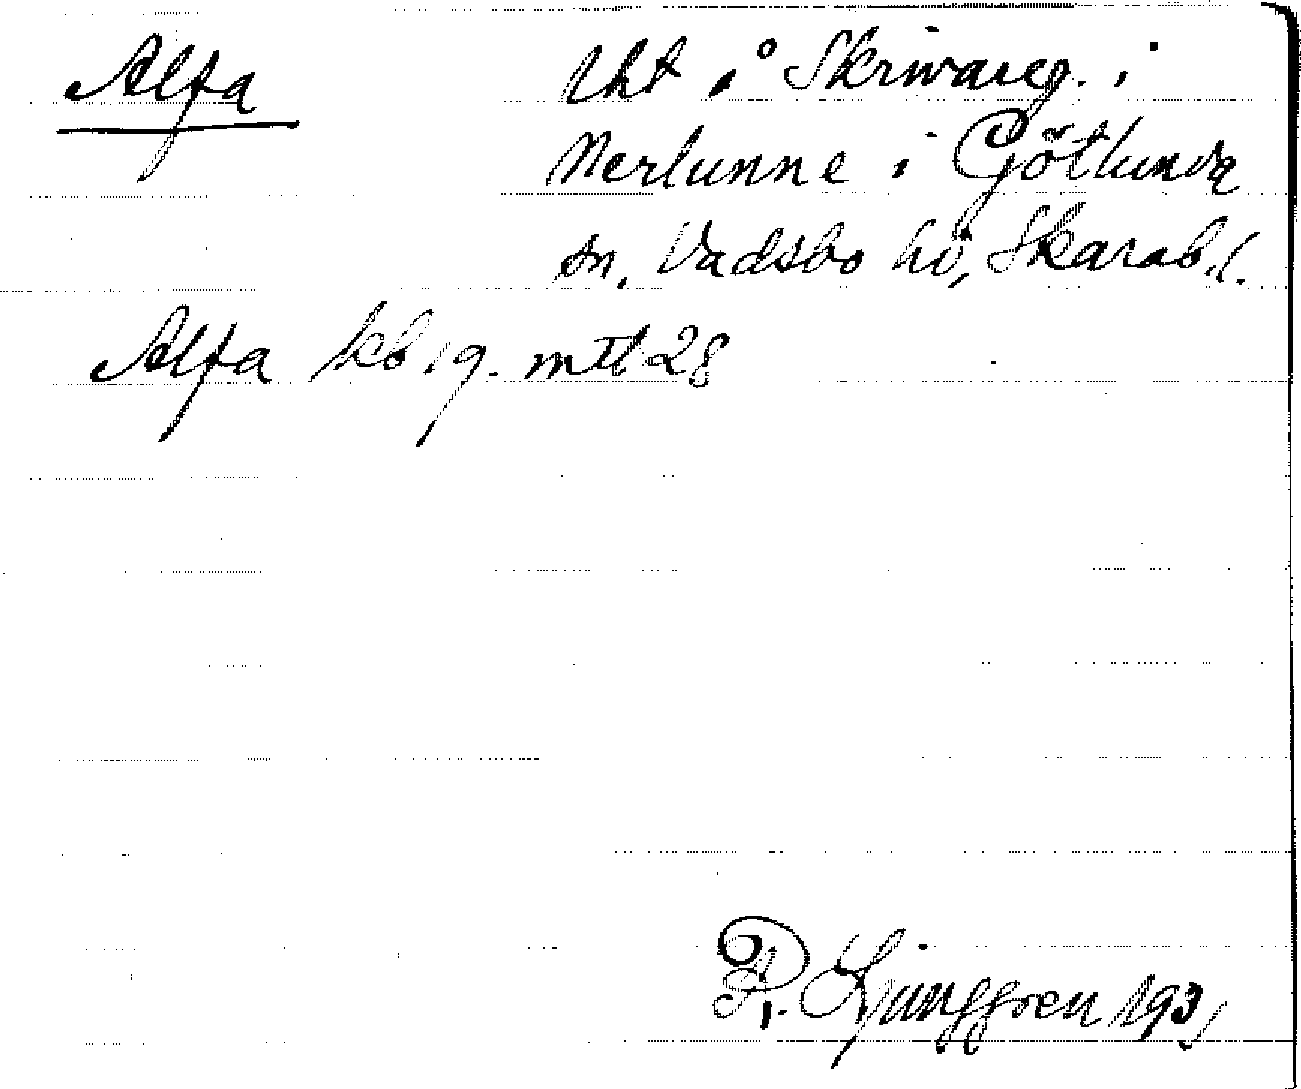 Alfa lht å Skrivareg. i
Nerlunne i Götlunda
sn, Vadsbo hd, Skarab.l.
Alfa kb. 9. mtl 28
R. Ljunggren 1931